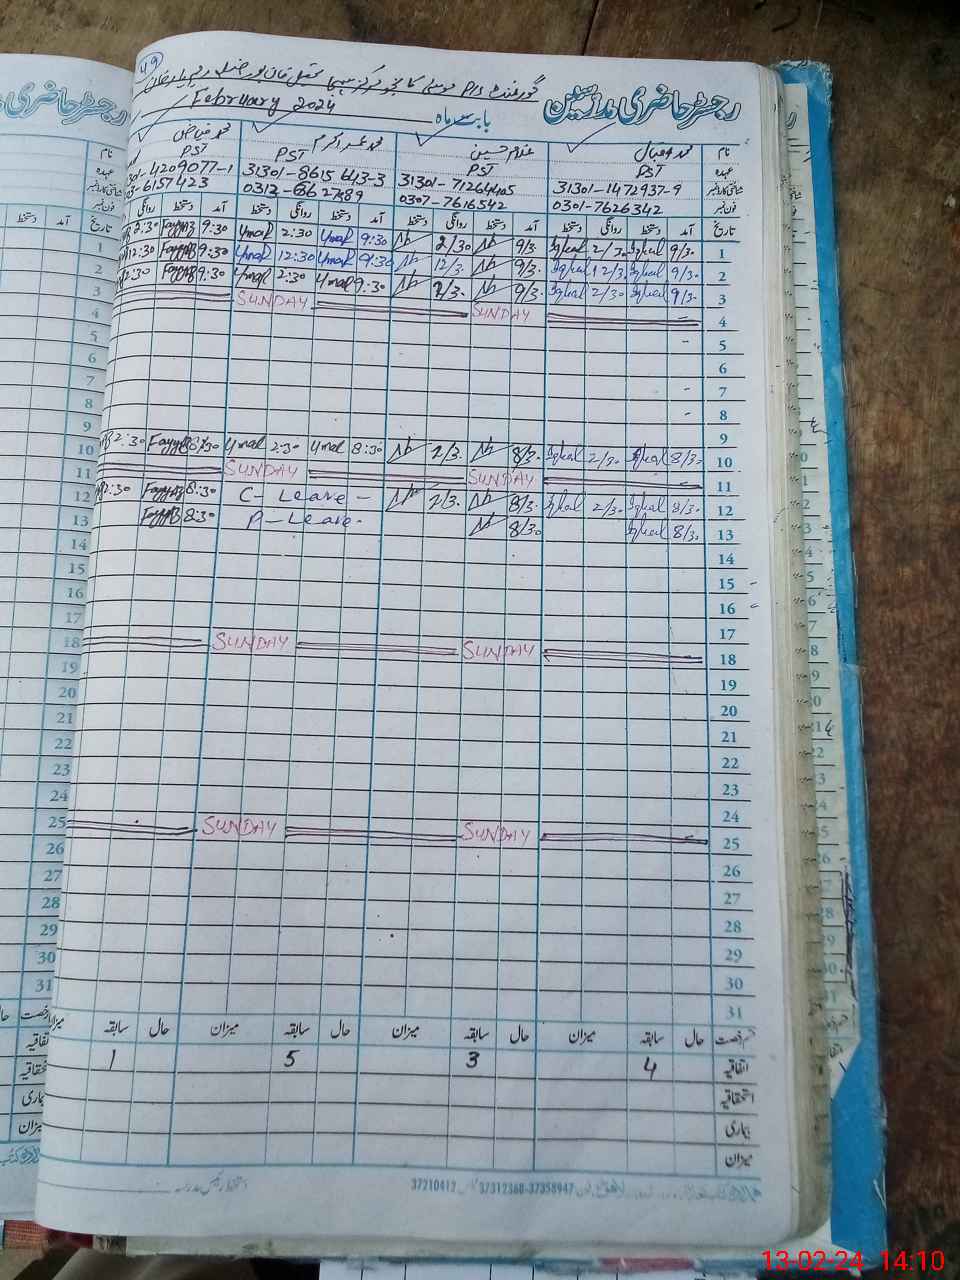 49
گورنمنٹ P/S موسیٰ کا نجو مرکز سہجا تحصیل خان پور ضلع رحیم یار خان
رجسٹر حاضری مدرسین
بابت ماہ February 2024
نام محمد اقبال غلام حسین محمد عمر اکرم محمد فیاض
عہدہ PST PST PST PST
شناختی کارڈ نمبر 31301-1472937-9 31301-71264405 31301-8615643-3 301-4209077-1
فون نمبر 0301-7626342 0307-7616542 0312-6627389 03-6157423
تاریخ آمد دستخط روانگی دستخط آمد دستخط روانگی دستخط آمد دستخط روانگی دستخط آمد دستخط روانگی
1 9/3. Iqbal 2/30 Iqbal 9/3. 2/30 9:30 4mar 2:30 4mar 9:30 Fayyaz 2:30
2 9/3. Iqbal 12/3. Iqbal 9/3. 12/3. 9:30 4mar 12:30 4mar 9:30 Fayyaz 12:30
3 9/3. Iqbal 2/30 Iqbal 9/3. 2/3. 9:30 4mar 2:30 4mar 9:30 Fayyaz 2:30
4 SUNDAY SUNDAY
5
6
7
8
9
10 8/3. Iqbal 2/3. Iqbal 8/3. 2/3. 8:30 4mar 2:30 4mar 8:30 Fayyaz 2:30
11 SUNDAY SUNDAY
12 8/3. Iqbal 2/3. Iqbal 8/3. 2/3. C- Leave - 8:30 Fayyaz 2:30
13 8/3. Iqbal 8/30 P-Leave. 8:30 Fayyaz
14
15
16
17
18 SUNDAY SUNDAY
19
20
21
22
23
24
25 SUNDAY SUNDAY
26
27
28
29
30
31
قسم رخصت حال سابقہ میزان حال سابقہ میزان حال سابقہ میزان حال سابقہ میزان
اتفاقیہ 4 3 5 1
استحقاقیہ
بیماری
میزان
37210412 37312368-37358947
دستخط رئیس مدرسہ
13-02-24 14:10